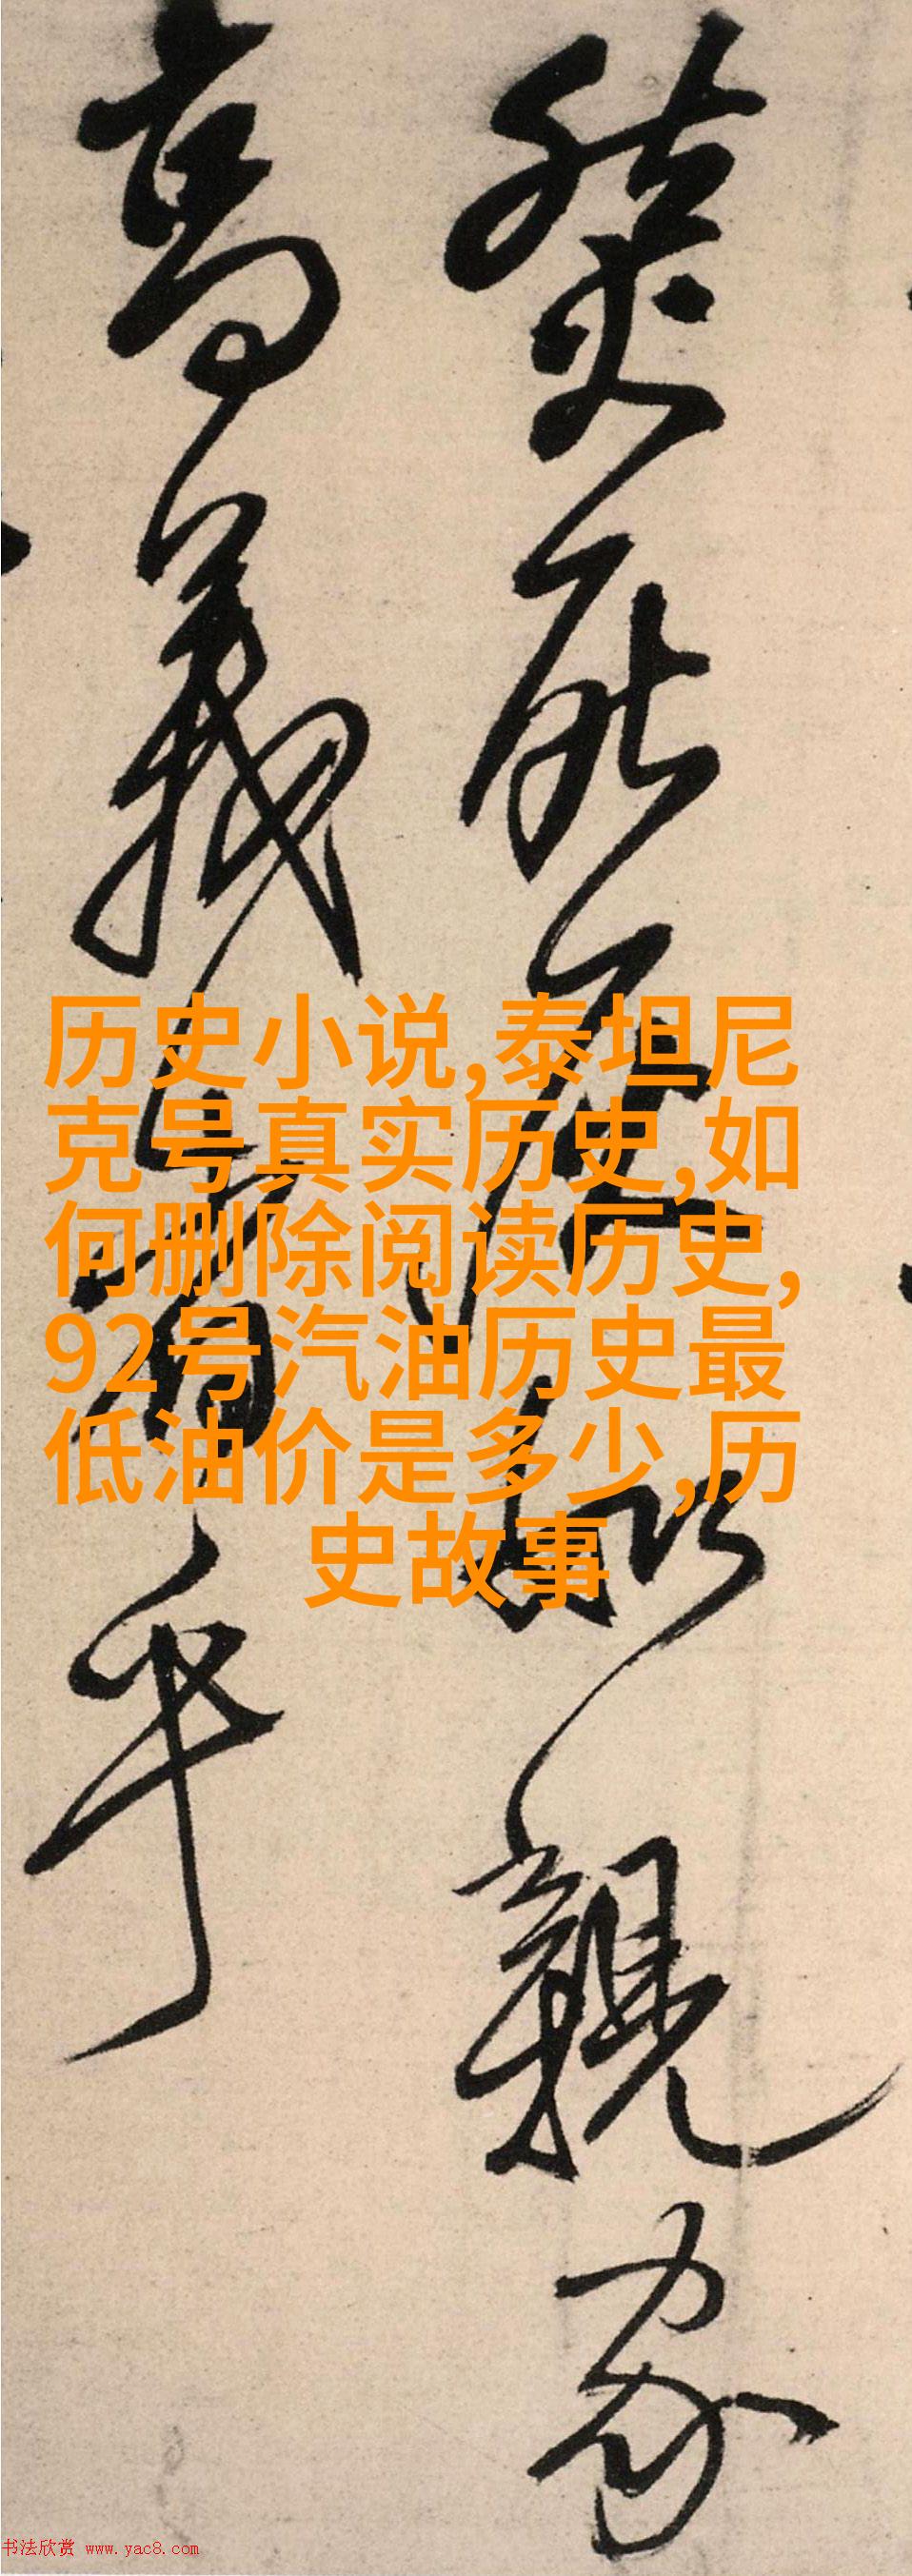 如親家
高義
历史小说,泰坦尼
克号真实历史,如
何删除阅读历史,
92号汽油历史最
低油价是多少,历
史故事
书法欣赏 www.yac8.com